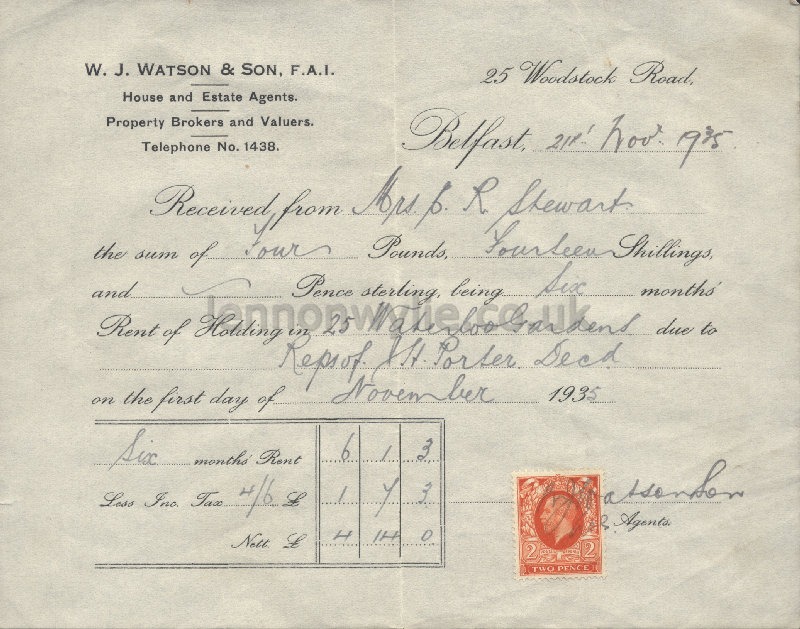 W. J. WATSON & SON, F.A.I.
House and Estate Agents.
Property Brokers and Valuers.
Telephone No. 1438.
25 Woodstock Road,
Belfast, 21st Novr 1935
Received from Mrs. R. Stewart
the sum of Four Pounds, Fourteen Shillings,
and Pence sterling, being Six months'
Rent of Holding in 25 Waterloo Gardens due to
Reps of Porter Decd
on the first day of November 1935
lennonwylie.co.uk
Six months' Rent 6 1 3
Less Inc. Tax 4/6 £ 1 7 3
Nett £ 4 14 0
Watson & Son
Agents.
2 2
TWO PENCE